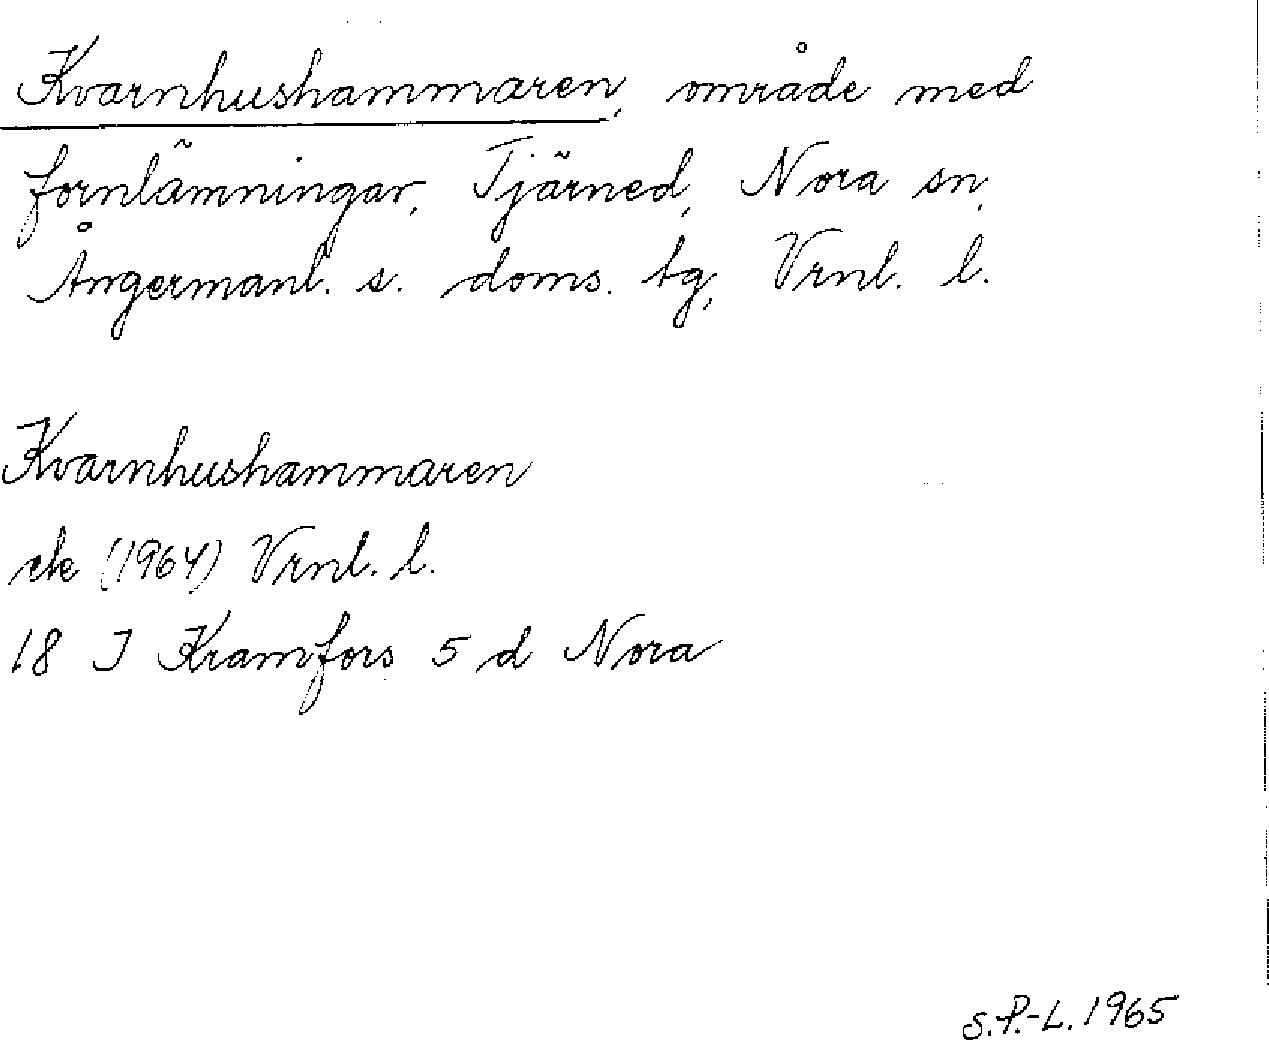 Kvarnhushammaren, område med
fornlämningar, Tjärned, Nora sn,
Ångermanl. s. doms. tg, Vrnl. l.
Kvarnhushammaren
ek (1964) Vrnl. l.
18 I Kramfors 5 d Nora
S.P.-L. 1965